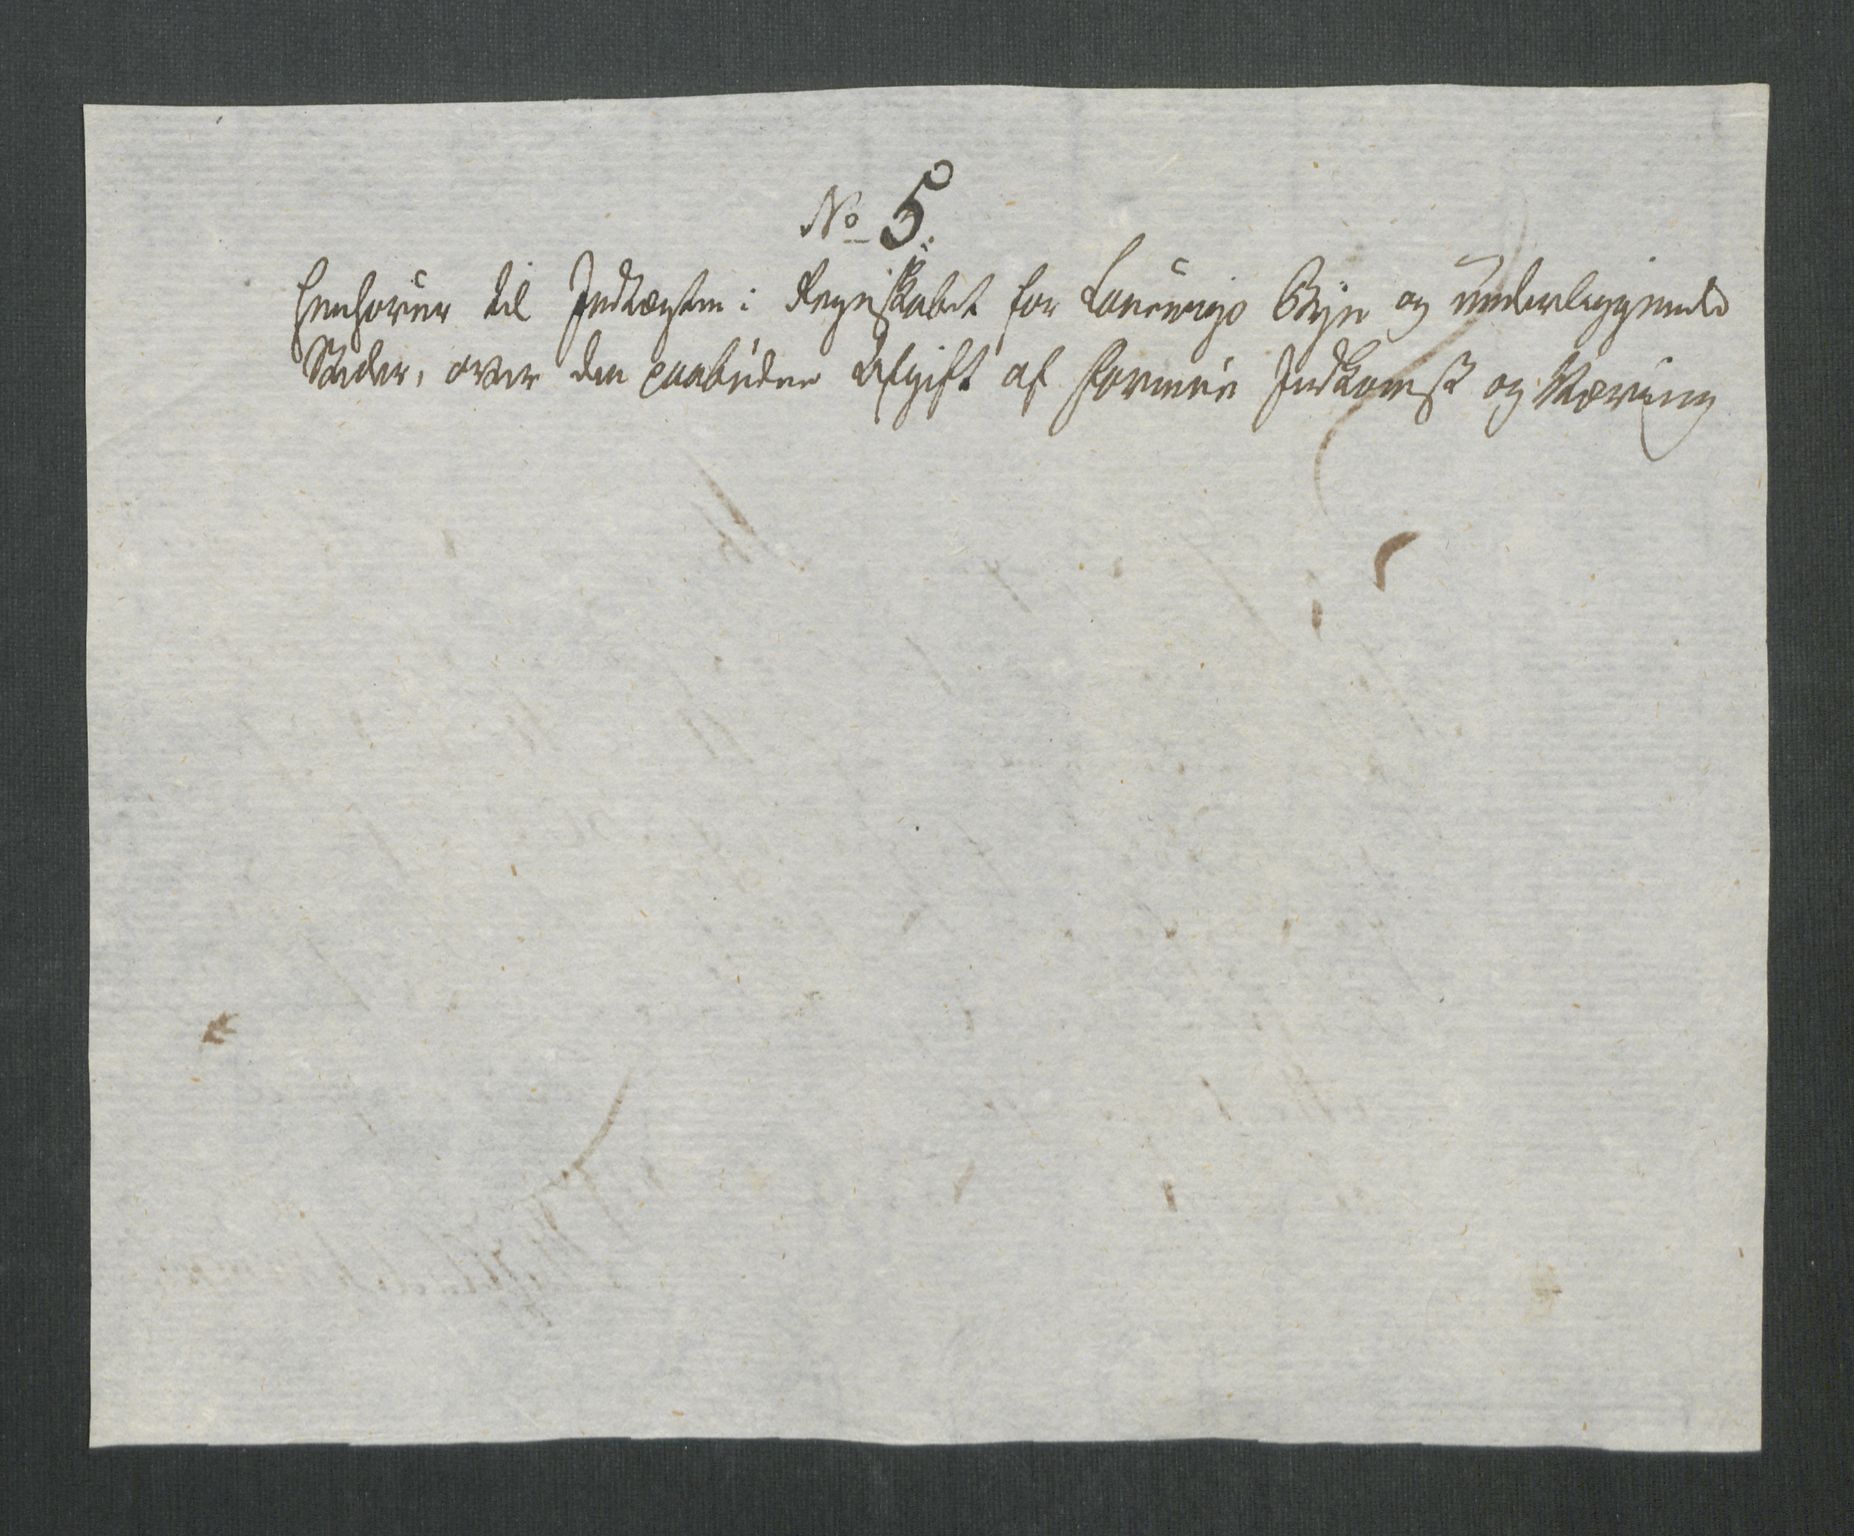 No 5.
henhörer til Indtægten i Regnskabet for Laurvigs Bye og underliggende
Steder, over den paabudne Afgift af Formue Indkomst og Næring